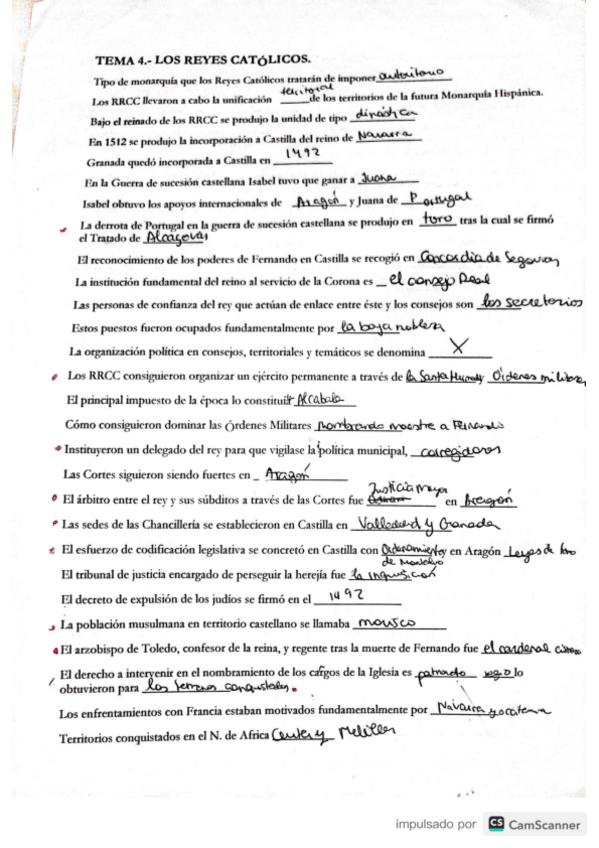 TEMA 4.- LOS REYES CATÓLICOS.
Tipo de monarquía que los Reyes Católicos tratarán de imponer autoritario
territorial
Los RRCC llevaron a cabo la unificación ____ de los territorios de la futura Monarquía Hispánica.
Bajo el reinado de los RRCC se produjo la unidad de tipo dinástica
En 1512 se produjo la incorporación a Castilla del reino de Navarra
Granada quedó incorporada a Castilla en 1492
En la Guerra de sucesión castellana Isabel tuvo que ganar a Juana
Isabel obtuvo los apoyos internacionales de Aragón y Juana de Portugal
La derrota de Portugal en la guerra de sucesión castellana se produjo en toro tras la cual se firmó
el Tratado de Alcaçovas
El reconocimiento de los poderes de Fernando en Castilla se recogió en Concordia de Segovia,
La institución fundamental del reino al servicio de la Corona es el consejo Real
Las personas de confianza del rey que actúan de enlace entre éste y los consejos son los secretarios
Estos puestos fueron ocupados fundamentalmente por la baja nobleza
La organización política en consejos, territoriales y temáticos se denomina X
Los RRCC consiguieron organizar un ejército permanente a través de la Santa Ordenes militares
El principal impuesto de la época lo constituía Alcabala
Cómo consiguieron dominar las Órdenes Militares nombrando maestre a Fernando
Instituyeron un delegado del rey para que vigilase la política municipal, corregidores
Las Cortes siguieron siendo fuertes en Aragón
Justicia Mayor
El árbitro entre el rey y sus súbditos a través de las Cortes fue ____ en Aragón
Las sedes de las Chancillería se establecieron en Castilla en Valladolid y Granada
El esfuerzo de codificación legislativa se concretó en Castilla con Ordenamiento en Aragón Leyes de toro
de Montalvo
El tribunal de justicia encargado de perseguir la herejía fue la inquisición
El decreto de expulsión de los judíos se firmó en el 1492
La población musulmana en territorio castellano se llamaba morisco
El arzobispo de Toledo, confesor de la reina, y regente tras la muerte de Fernando fue el cardenal
El derecho a intervenir en el nombramiento de los cargos de la Iglesia es patronato regio lo
obtuvieron para los terrenos conquistados.
Los enfrentamientos con Francia estaban motivados fundamentalmente por Navarra y
Territorios conquistados en el N. de Africa Ceuta y Melilla
impulsado por CS CamScanner